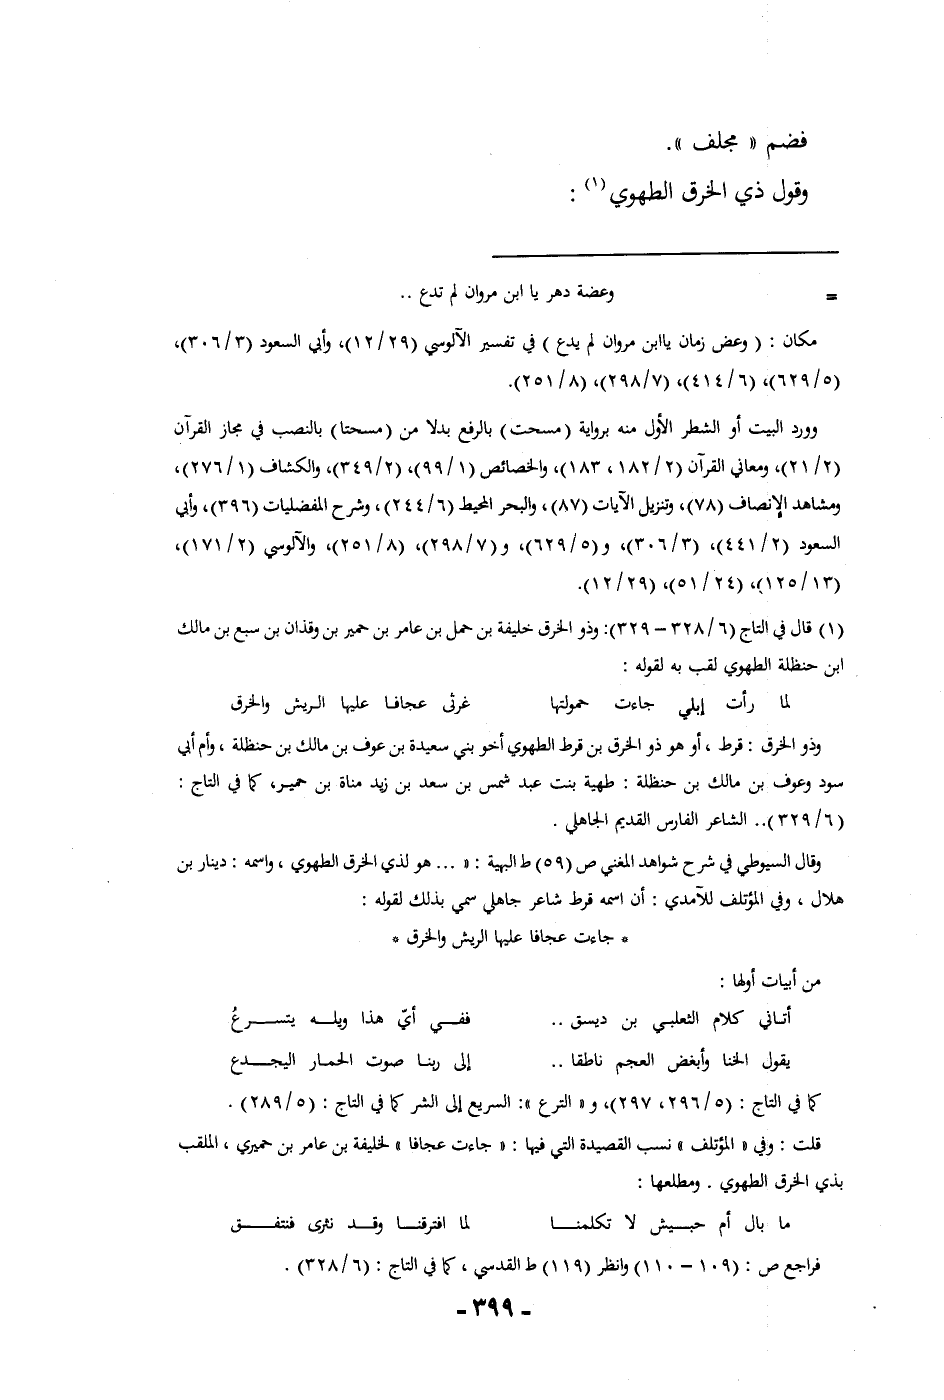 فضم « مجلف ».
وقول ذي الخرق الطهوي (١) :
= وعضة دهر يا ابن مروان لم تدع ..
مكان : ( وعض زمان ياابن مروان لم يدع ) في تفسير الآلوسي (١٢/٢٩)، وأبي السعود (٣٠٦/٣)،
(٦٢٩/٥)، (٤١٤/٦)، (٢٩٨/٧)، (٢٥١/٨).
وورد البيت أو الشطر الأول منه برواية (مسحت) بالرفع بدلا من (مسحتا) بالنصب في مجاز القرآن
(٢١/٢)، ومعاني القرآن (١٨٢/٢ ، ١٨٣)، والخصائص (٩٩/١)، (٣٤٩/٢)، والكشاف (٢٧٦/١)،
ومشاهد الإنصاف (٧٨)، وتنزيل الآيات (٨٧)، والبحر المحيط (٢٤٤/٦)، وشرح المفضليات (٣٩٦)، وأبي
السعود (٤٤١/٢)، (٣٠٦/٣)، و(٦٢٩/٥)، و(٢٩٨/٧)، (٢٥١/٨)، والآلوسي (١٧١/٢)،
(١٢٥/١٣)، (٥١/٢٤)، (١٢/٢٩).
(١) قال في التاج (٣٢٨/٦ – ٣٢٩): وذو الخرق خليفة بن حمل بن عامر بن حمير بن وقذان بن سبع بن مالك
ابن حنظلة الطهوي لقب به لقوله :
لما رأت إبلي جاءت حمولتها غرثى عجافا عليها الريش والخرق
وذو الخرق : قرط ، أو هو ذو الخرق بن قرط الطهوي أخو بني سعيدة بن عوف بن مالك بن حنظلة ، وأم أبي
سود وعوف بن مالك بن حنظلة : طهية بنت عبد شمس بن سعد بن زيد مناة بن حمير، كما في التاج :
(٣٢٩/٦).. الشاعر الفارس القديم الجاهلي .
وقال السيوطي في شرح شواهد المغني ص (٥٩) ط البهية : « ... هو لذي الخرق الطهوي ، واسمه : دينار بن
هلال ، وفي المؤتلف للآمدي : أن اسمه قرط شاعر جاهلي سمي بذلك لقوله :
* جاءت عجافا عليها الريش والخرق *
من أبيات أولها :
أتاني كلام الثعلبي بن ديسق .. ففي أيّ هذا ويله يتسرعُ
يقول الخنا وأبغض العجم ناطقا .. إلى ربنا صوت الحمار اليجدع
كما في التاج : (٢٩٦/٥، ٢٩٧)، و « الترع »: السريع إلى الشر كما في التاج : (٢٨٩/٥) .
قلت : وفي « المؤتلف » نسب القصيدة التي فيها : « جاءت عجافا » لخليفة بن عامر بن حميري ، الملقب
بذي الخرق الطهوي . ومطلعها :
ما بال أم حبيش لا تكلمنا لما افترقنا وقد نثرى فنتفق
فراجع ص : (١٠٩ – ١١٠) وانظر (١١٩) ط القدسي ، كما في التاج : (٣٢٨/٦) .
- ٣٩٩ -